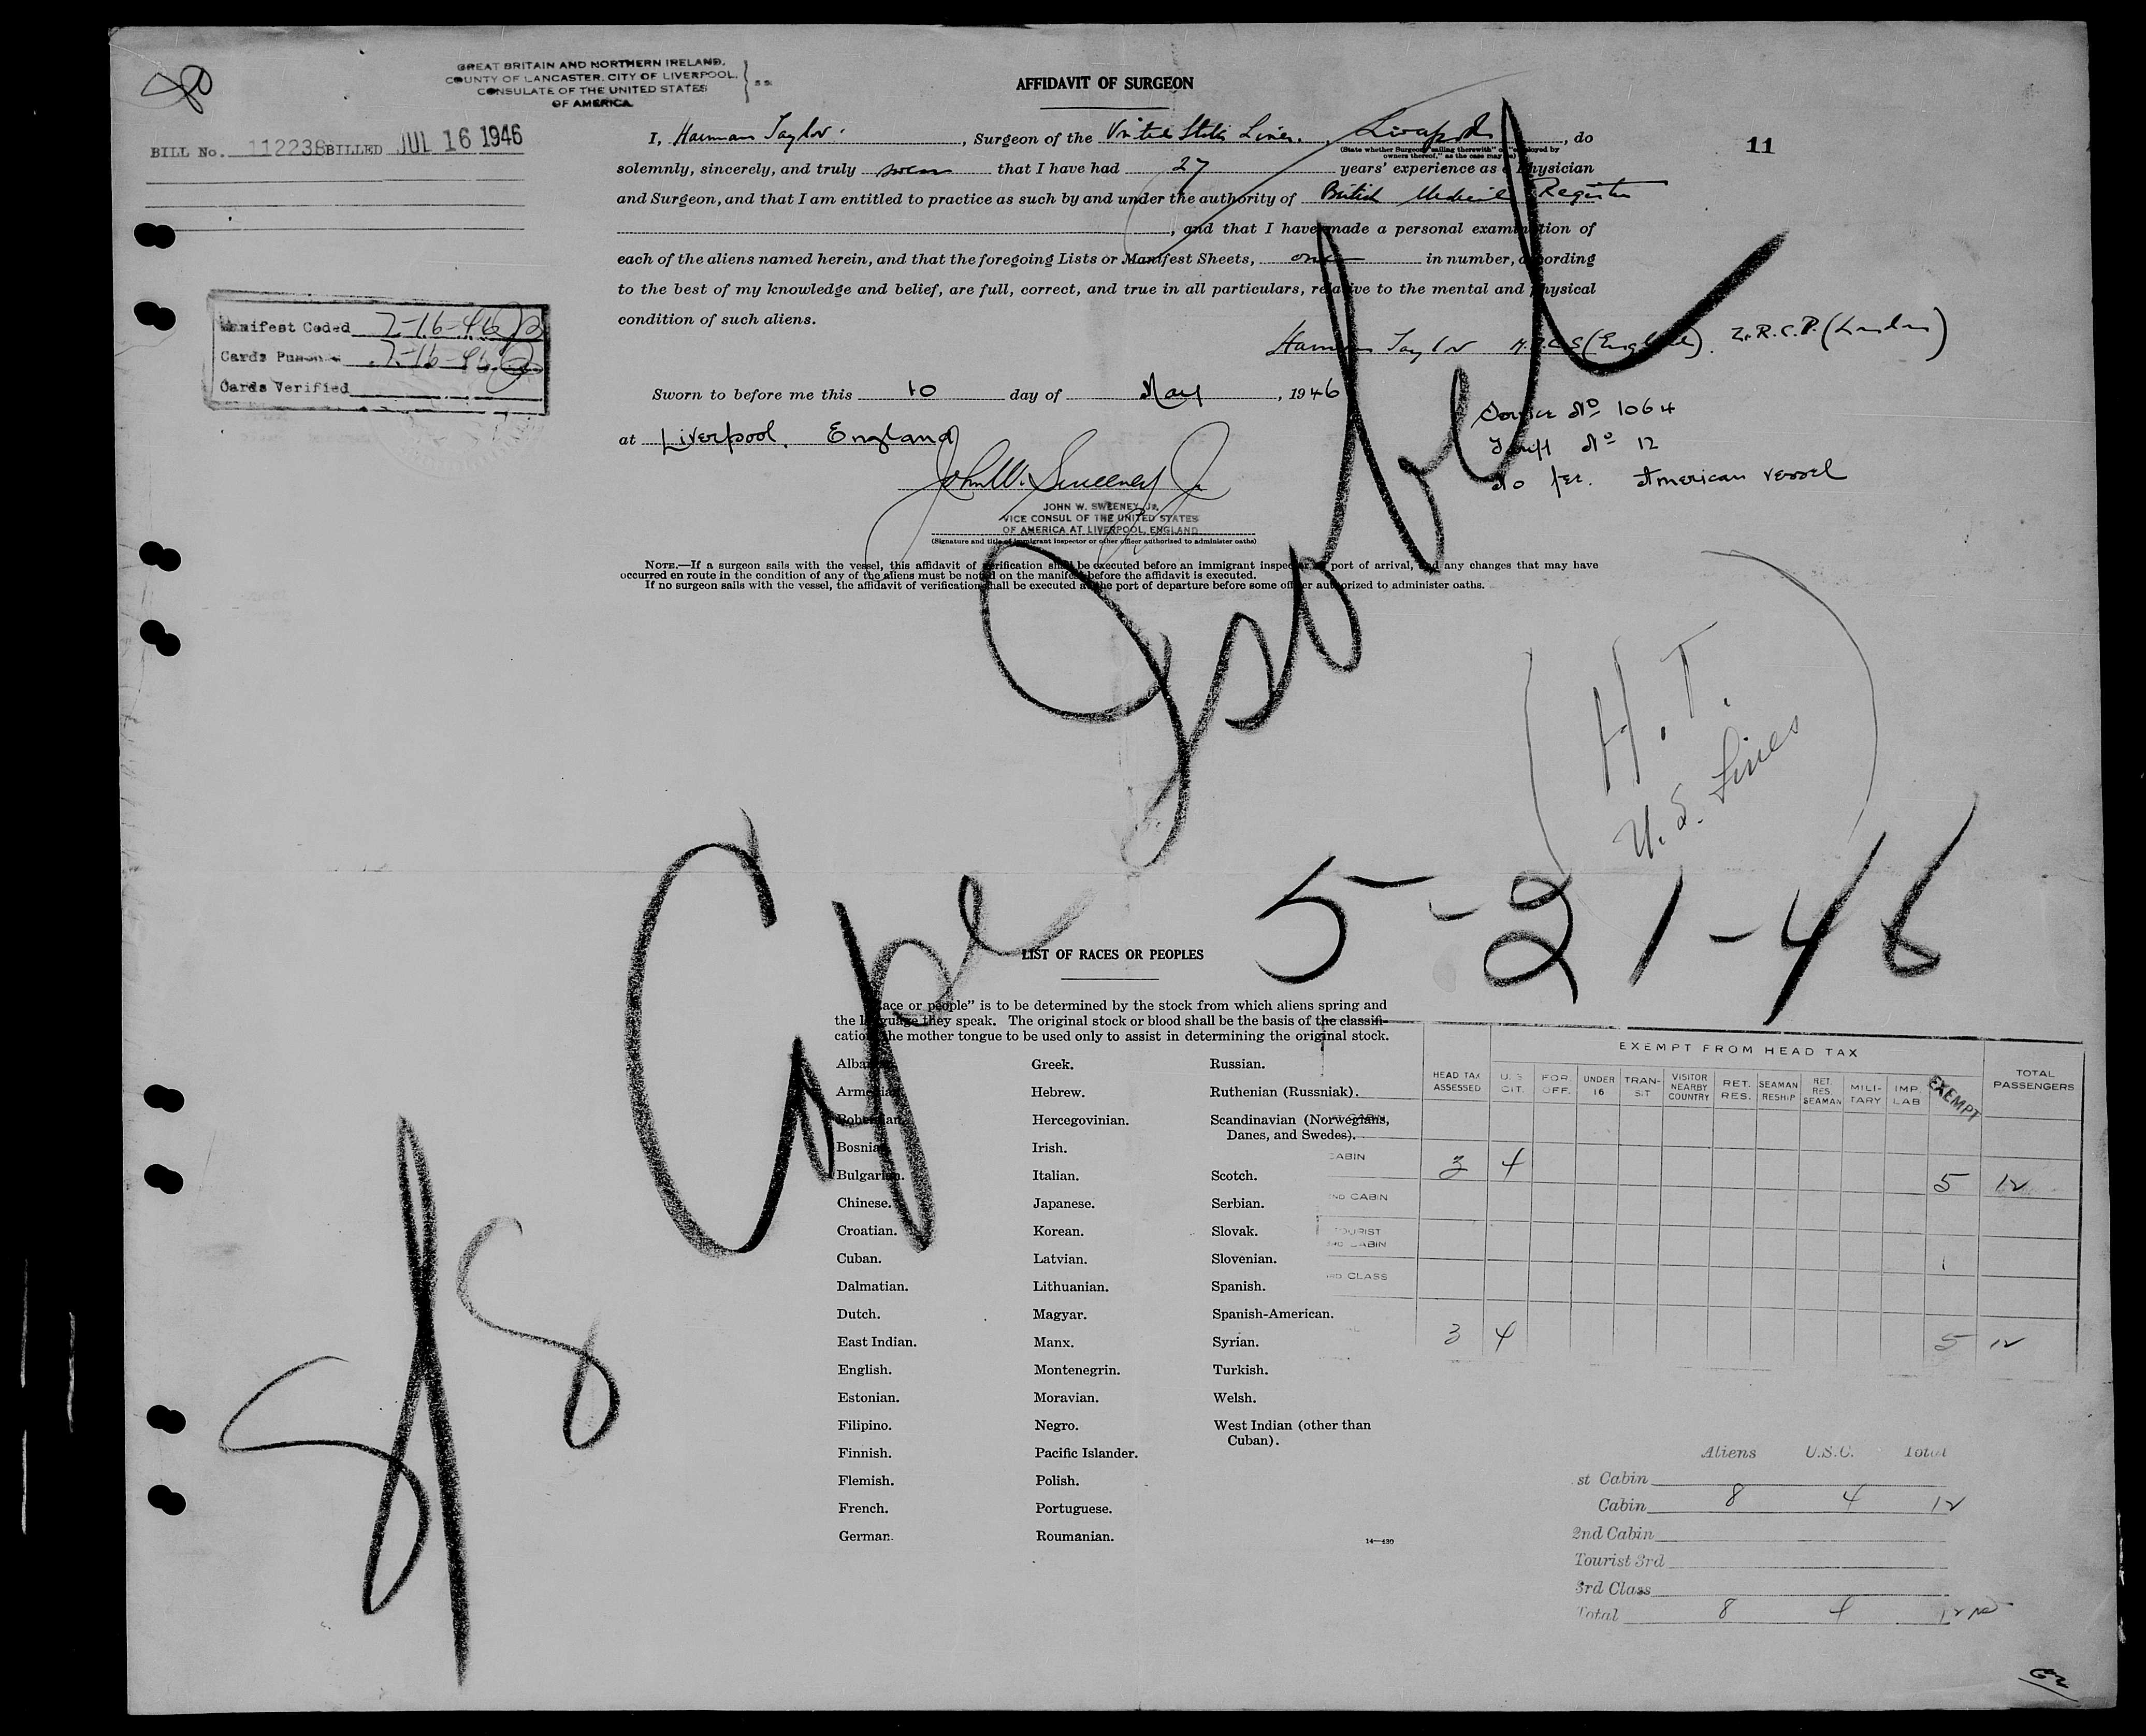 GREAT BRITAIN AND NORTHERN IRELAND.
COUNTY OF LANCASTER. CITY OF LIVERPOOL.
CONSULATE OF THE UNITED STATES
OF AMERICA
} SS.
BILL No. 112238 BILLED JUL 16 1946
AFFIDAVIT OF SURGEON
11
I, Harman Taylor, Surgeon of the United States Lines, Liverpool, do
(State whether Surgeon "sailing therewith" or "employed by
owners thereof," as the case may be)
solemnly, sincerely, and truly swear that I have had 27 years' experience as a Physician
and Surgeon, and that I am entitled to practice as such by and under the authority of British Medical Register
, and that I have made a personal examination of
each of the aliens named herein, and that the foregoing Lists or Manifest Sheets, one in number, according
to the best of my knowledge and belief, are full, correct, and true in all particulars, relative to the mental and physical
condition of such aliens.
Harman Taylor M.R.C.S (England). L.R.C.P. (London)
Manifest Coded 7-16-46
Cards Punched 7-16-46
Cards Verified
Sworn to before me this 10 day of May, 1946
at Liverpool, England
Service No 1064
Tariff No 12
No fee. American vessel
John W. Sweeney Jr
JOHN W. SWEENEY, JR.
VICE CONSUL OF THE UNITED STATES
OF AMERICA AT LIVERPOOL, ENGLAND
(Signature and title of immigrant inspector or other officer authorized to administer oaths)
NOTE.—If a surgeon sails with the vessel, this affidavit of verification shall be executed before an immigrant inspector at port of arrival, and any changes that may have
occurred en route in the condition of any of the aliens must be noted on the manifest before the affidavit is executed.
If no surgeon sails with the vessel, the affidavit of verification shall be executed at the port of departure before some officer authorized to administer oaths.
(H. T.
U. S. Lines)
S/S Cape Isabel
5-21-46
LIST OF RACES OR PEOPLES
"Race or people" is to be determined by the stock from which aliens spring and
the language they speak. The original stock or blood shall be the basis of the classifi-
cation, the mother tongue to be used only to assist in determining the original stock.
Albanian.
Armenian.
Bohemian.
Bosnian.
Bulgarian.
Chinese.
Croatian.
Cuban.
Dalmatian.
Dutch.
East Indian.
English.
Estonian.
Filipino.
Finnish.
Flemish.
French.
German.
Greek.
Hebrew.
Hercegovinian.
Irish.
Italian.
Japanese.
Korean.
Latvian.
Lithuanian.
Magyar.
Manx.
Montenegrin.
Moravian.
Negro.
Pacific Islander.
Polish.
Portuguese.
Roumanian.
Russian.
Ruthenian (Russniak).
Scandinavian (Norwegians,
Danes, and Swedes).
Scotch.
Serbian.
Slovak.
Slovenian.
Spanish.
Spanish-American.
Syrian.
Turkish.
Welsh.
West Indian (other than
Cuban).
14—430
EXEMPT FROM HEAD TAX
HEAD TAX ASSESSED U. S. CIT. FOR. OFF. UNDER 16 TRAN-SIT VISITOR NEARBY COUNTRY RET. RES. SEAMAN RESHIP RET. RES. SEAMAN MILI-TARY IMP. LAB EXEMPT TOTAL PASSENGERS
CABIN
CABIN 3 4 5 12
2ND CABIN
TOURIST
3RD CABIN 1
3RD CLASS
3 4 5 12
Aliens U.S.C. Total
st Cabin
Cabin 8 4 12
2nd Cabin
Tourist 3rd
3rd Class
Total 8 4 12